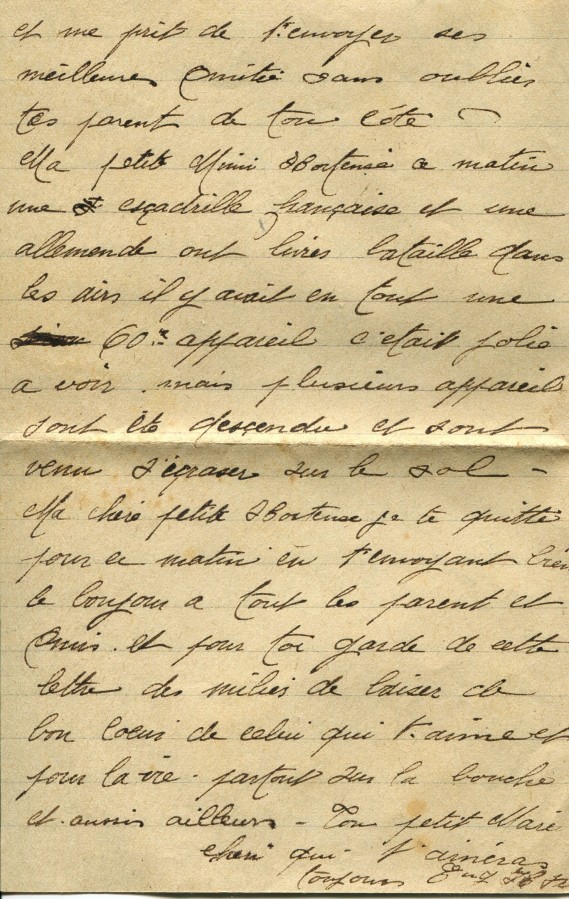 et me prit de t'envoyer ses
meilleures Amitié sans oubliés
tes parent de ton côté
Ma petite Mimi Hortense ce matin
une escadrille française et une
allemende ont livres bataille dans
les airs il y avait en tout une
60.ne appareil c'etait jolie
a voir. mais plusieurs appareil
sont été descendu et sont
venu s'égraser sur le sol -
Ma chère petite Hortense je te quitte
pour ce matin en t'envoyant bien
le bonjour a tout les parent et
Amis. et pour toi garde de cette
lettre des milies de baiser de
bon coeur de celui qui t'aime et
pour la vie. partout sur la bouche
et aussis ailleurs - Ton petit Mari
cheri qui t'aimeras
toujours Eug